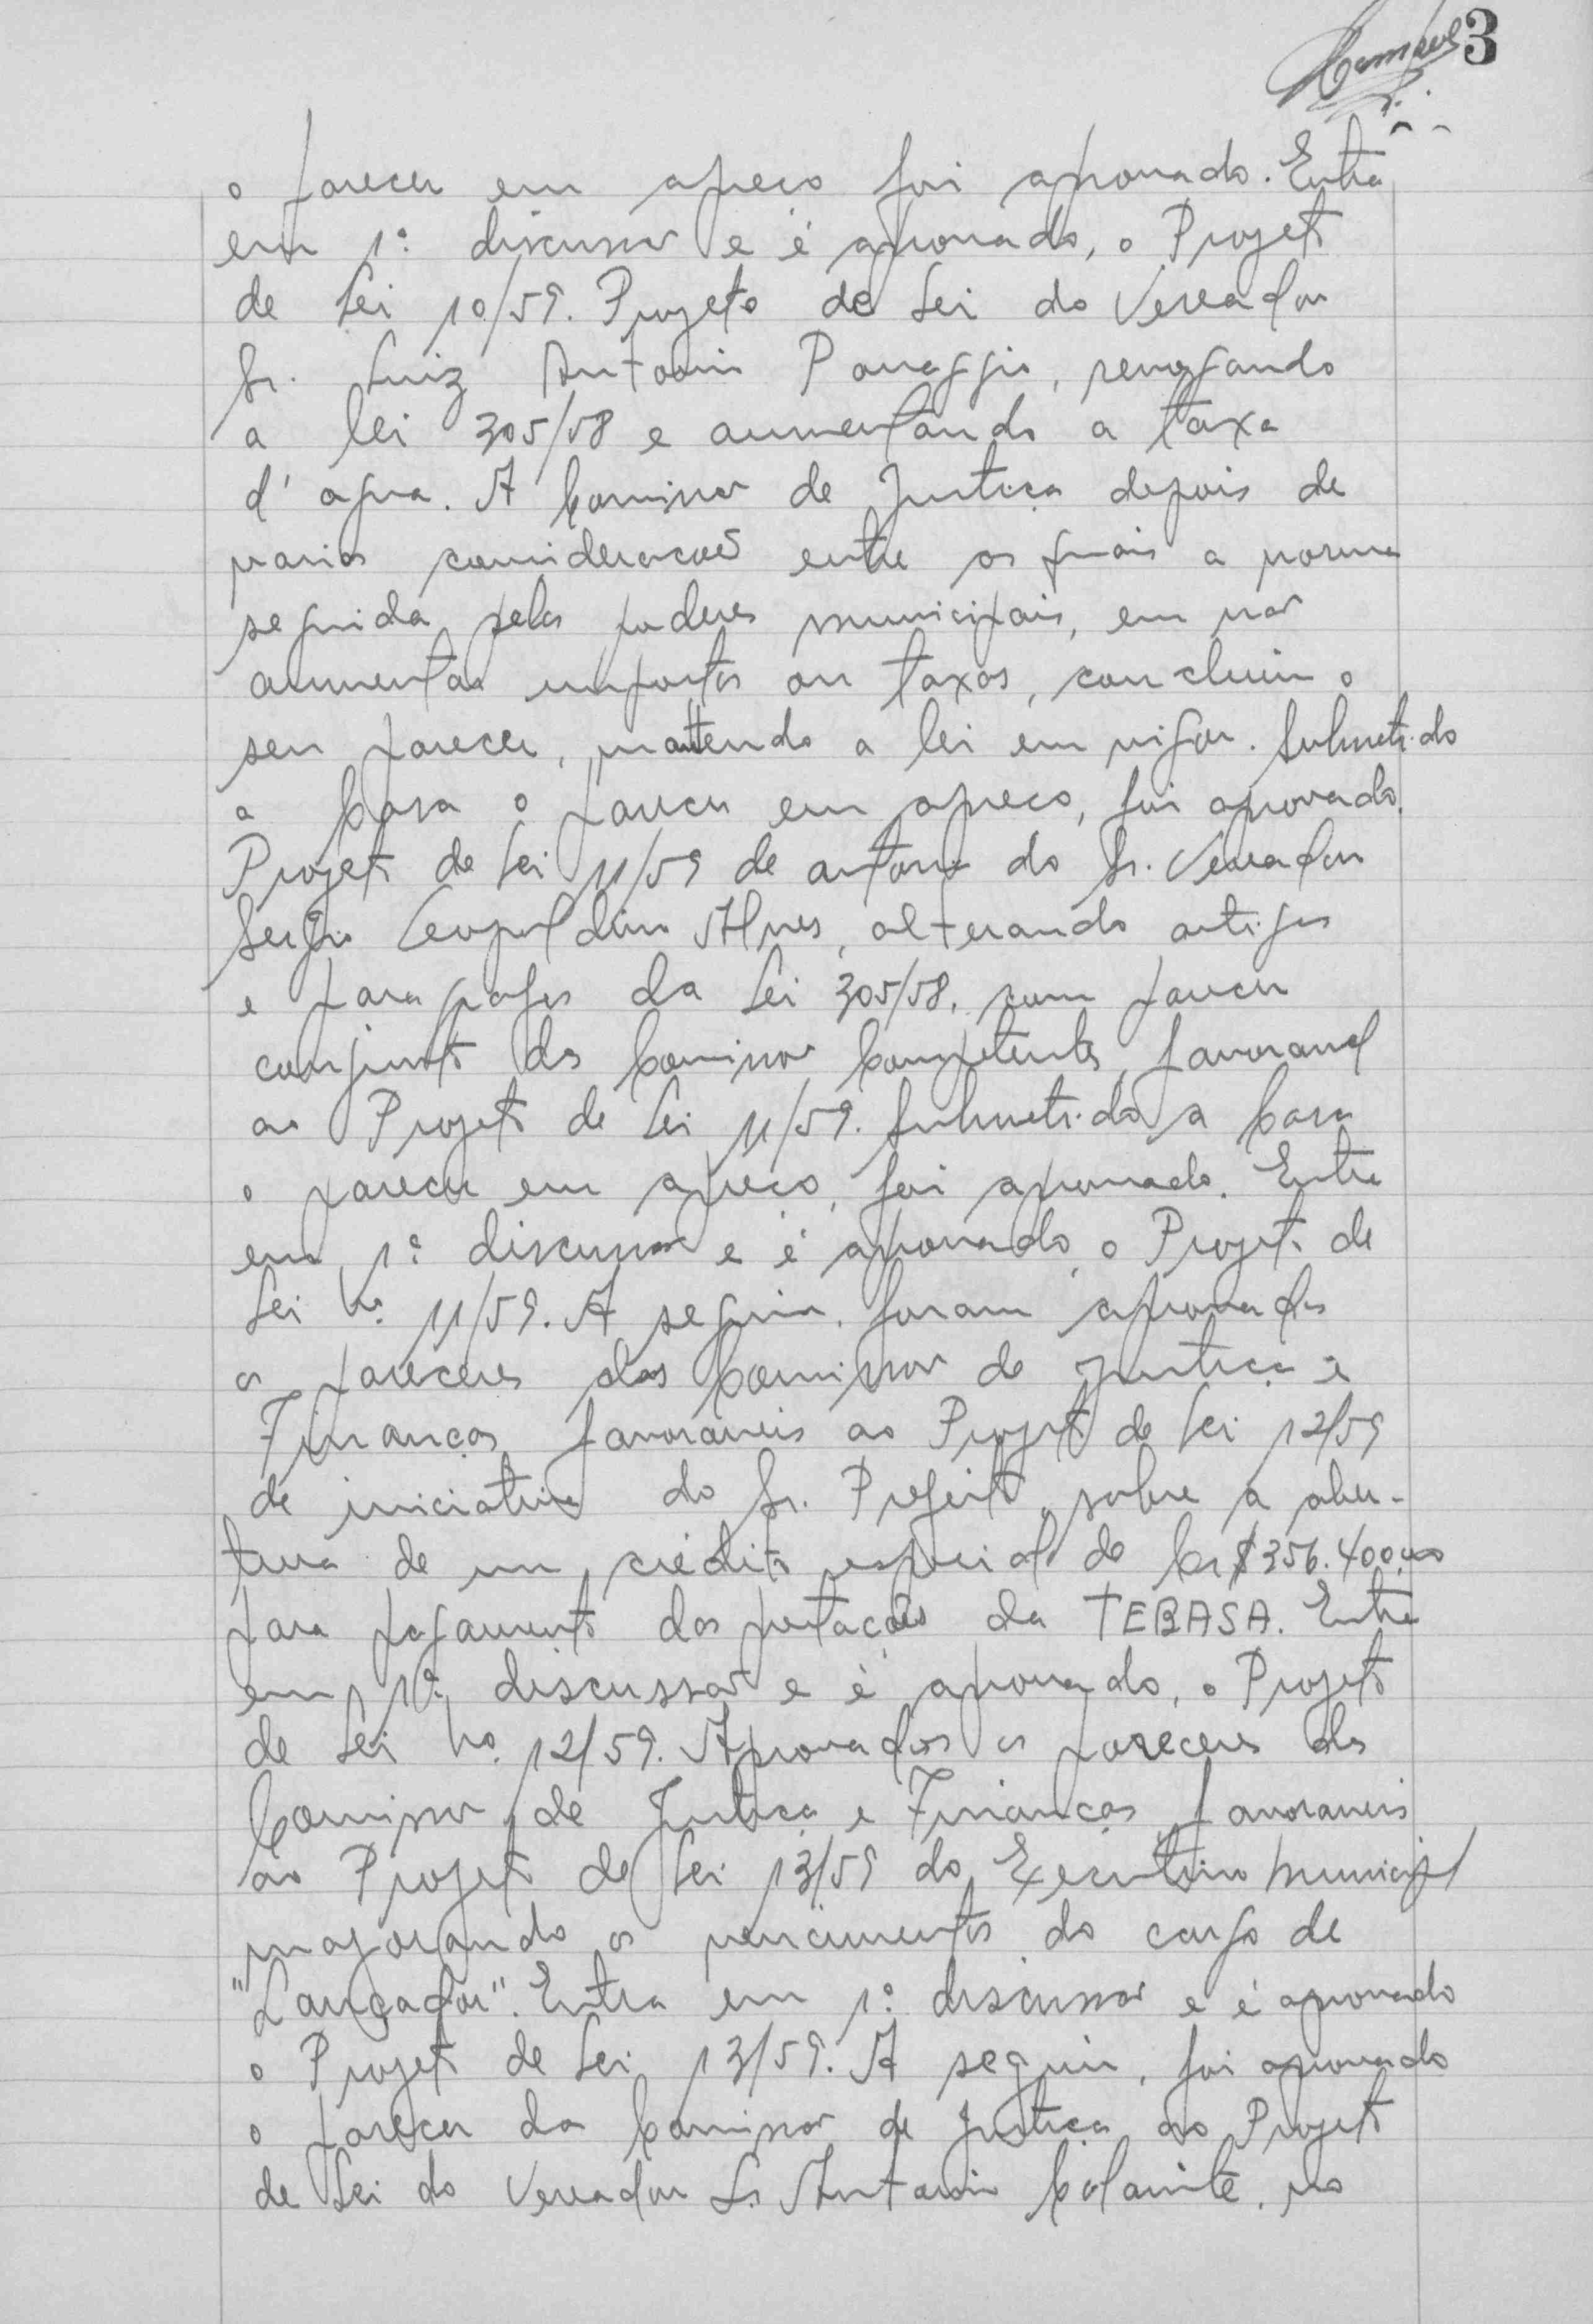 3
o parecer em apreço foi aprovado. Entra
em 1ª discussão e é aprovado, o Projeto
de Lei 10/59. Projeto de Lei do Vereador
Sr. Luiz Antonio Panaggio, revogando
a lei 305/58 e aumentando a taxa
d'agua. A Comissão de Justiça depois de
varias considerações entre as quais a norma
seguida pelos poderes municipais, em não
aumentar impostos ou taxas, concluiu o
seu parecer, mantendo a lei em vigor. Submetido
a Casa o parecer em apreço, foi aprovado.
Projeto de Lei 11/59 de autoria do Sr. Vereador
Sergio Leopoldino Alves, alterando artigos
e paragrafos da Lei 305/58, com parecer
conjunto das Comissão Competentes, favoravel
ao Projeto de Lei 11/59. Submetido a Casa
o parecer em apreço, foi aprovado. Entra
em 1ª discussão e é aprovado, o Projeto de
Lei no. 11/59. A seguir, foram aprovados
os pareceres das Comissão de Justiça e
Finanças favoraveis ao Projeto de Lei 12/59
de iniciativa do Sr. Prefeito, sobre a aber-
tura de um crédito especial de Cr\$356.400,00
para pagamento das prestações da TEBASA. Entra
em 1ª discussão e é aprovado, o Projeto
de Lei no. 12/59. Aprovados os pareceres das
Comissão de Justiça e Finanças, favoraveis
ao Projeto de Lei 13/59 do Executivo Municipal
majorando os vencimentos do cargo de
"Lançador". Entra em 1ª discussão e é aprovado
o Projeto de Lei 13/59. A seguir, foi aprovado
o parecer da Comissão de Justiça ao Projeto
de Lei do Vereador Sr. Antonio no